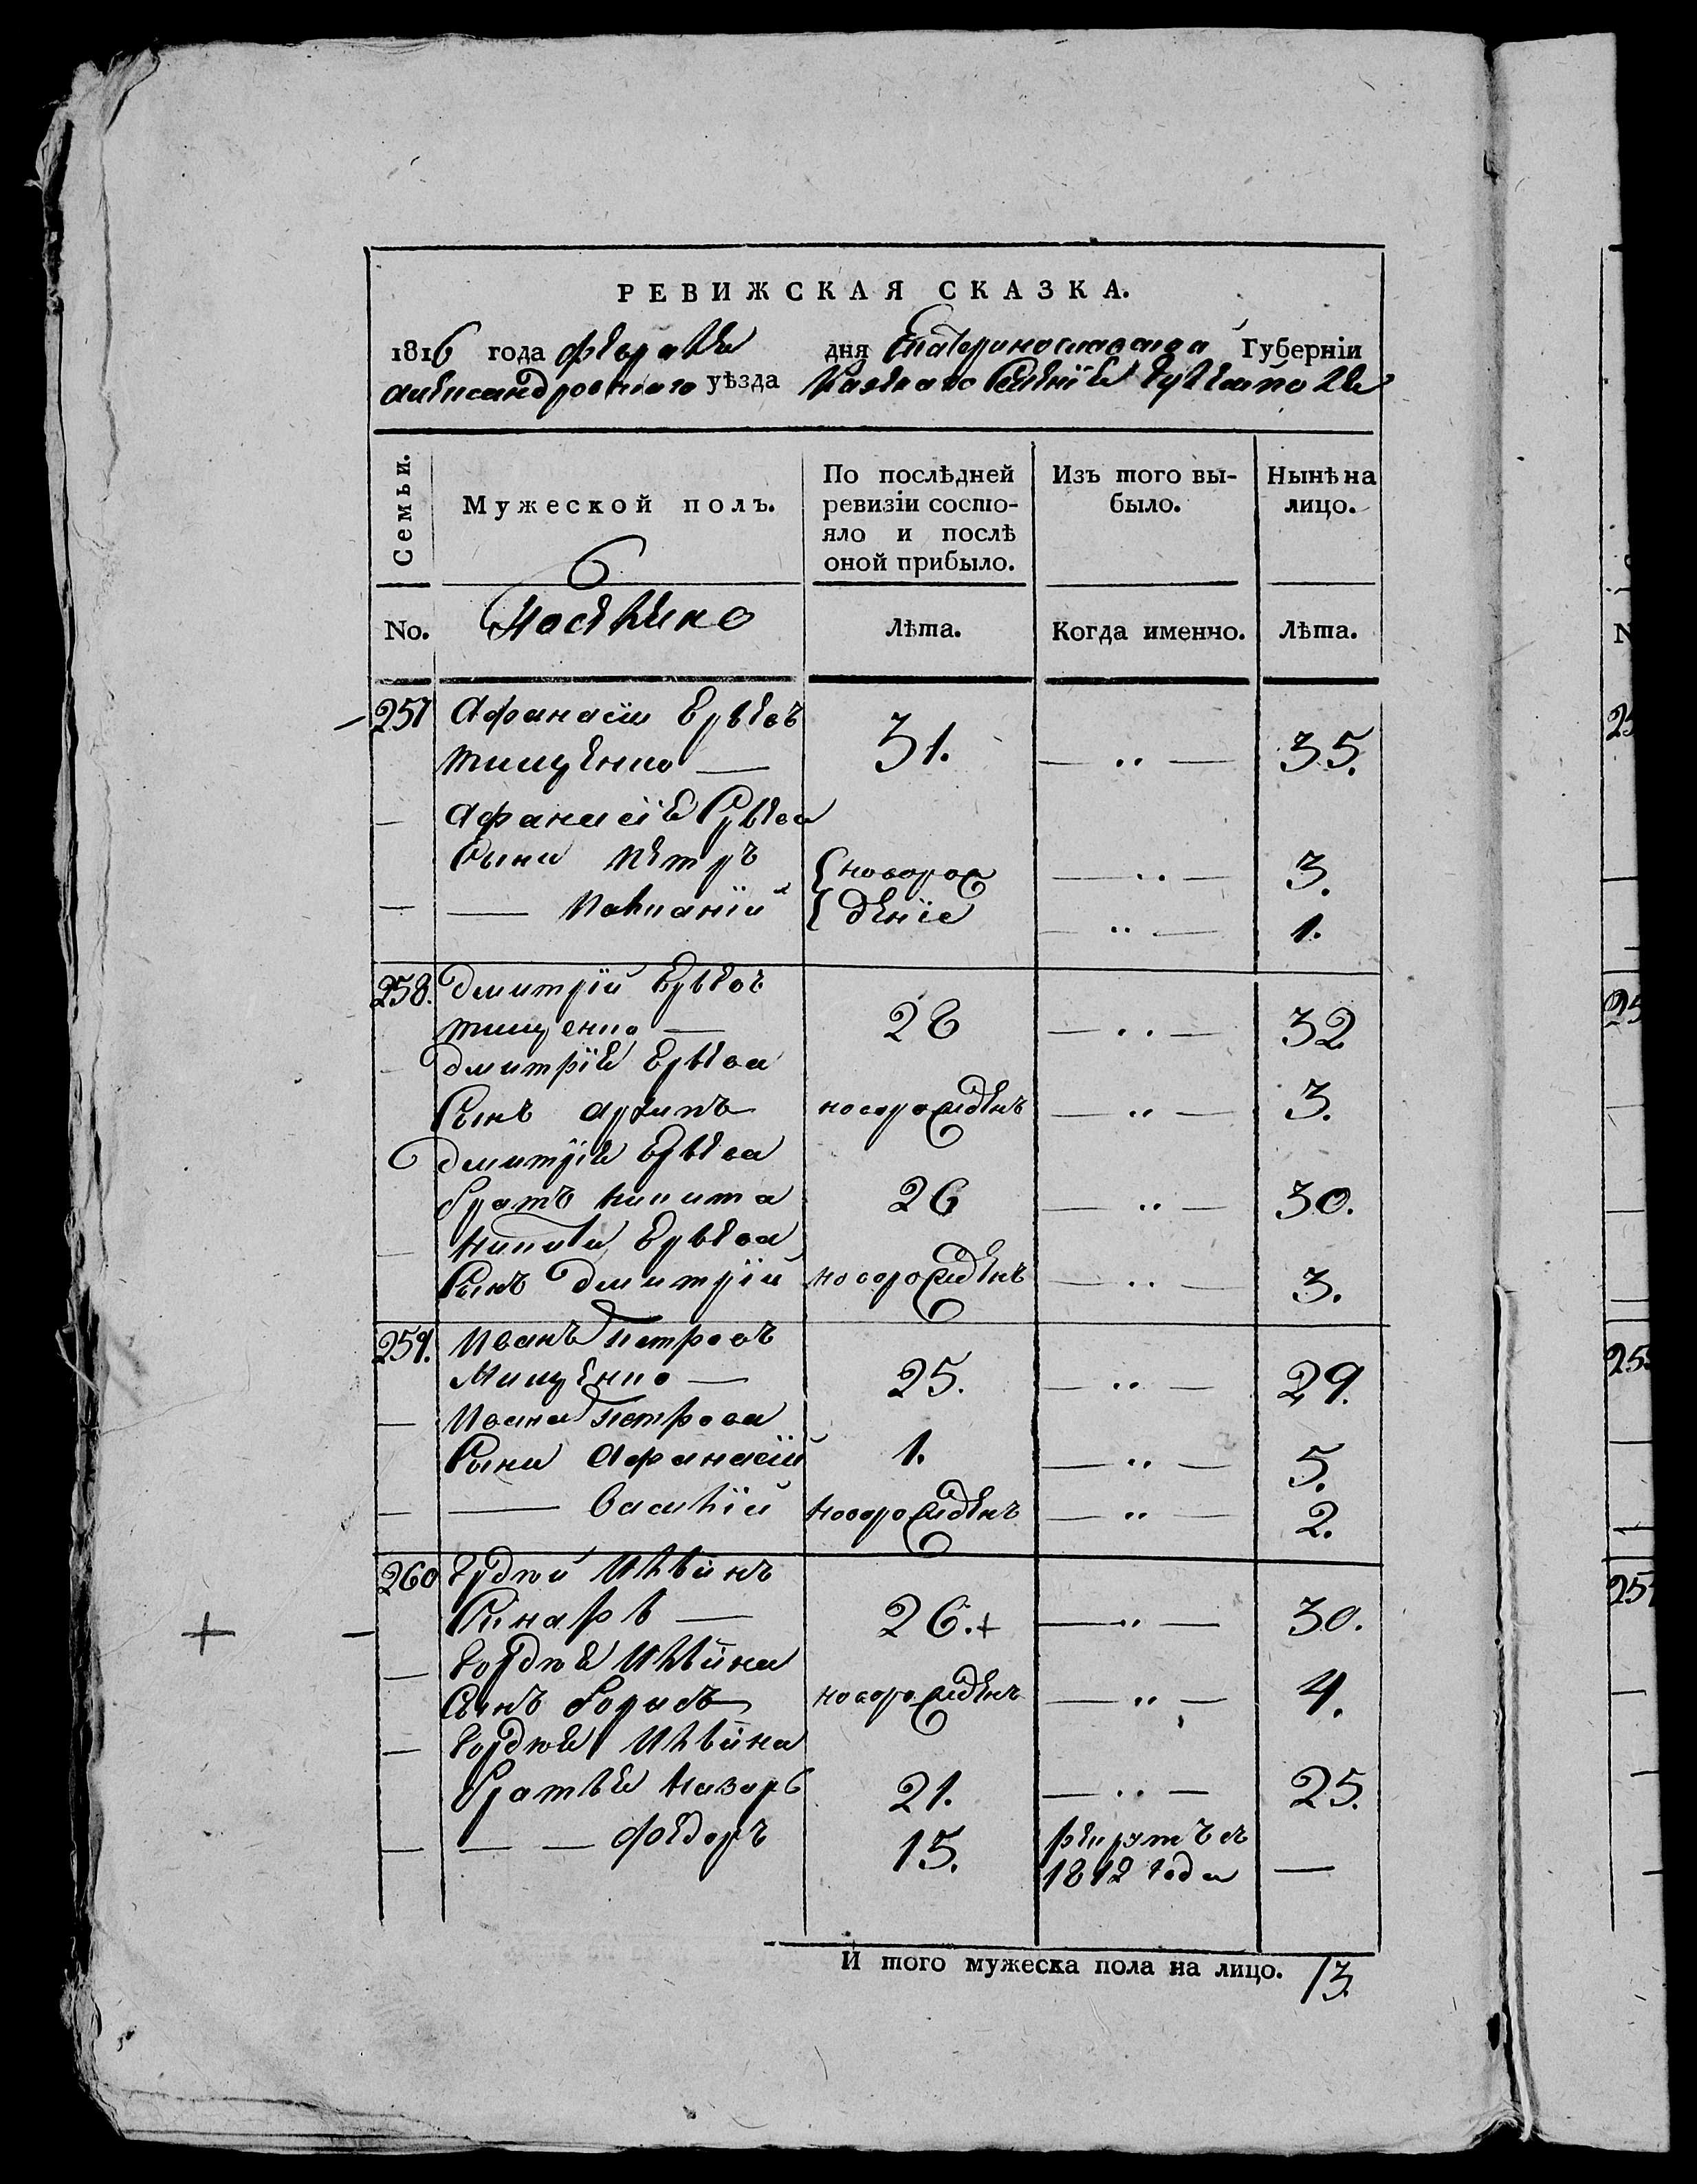 РЕВИЖСКАЯ СКАЗКА.
1816 года февраля дня Екатеринославской Губерніи
Александровского уѣзда Казенного Селенія Гуляйполя
Семьи.
Мужеской полъ.
По послѣдней ревизіи состояло и послѣ оной прибыло.
Изъ того выбыло.
Нынѣ на лицо.
No.
Лѣта.
Когда именно.
Лѣта.
257 Афанасій
Тищенко — 31. — „ — 35.
— Афанасія
Сынъ Петръ новорож — „ — 3.
— — деніе — „ — 1.
258. Дмитрій
Тищенко — 28 — „ — 32
— Дмитрія
Сынъ Архипъ новорожденъ — „ — 3.
Дмитрія
братъ Никита 26 — „ — 30.
— Никиты
Сынъ Дмитрій новорожденъ — „ — 3.
259. Иванъ Петровъ
Мищенко — 25. — „ — 29.
— Ивана Петрова
Сынъ Афанасій 1. — „ — 5.
— — Василій новорожденъ — „ — 2.
260 Гордѣй Ильинъ
— 26.+ — „ — 30.
— Гордѣя Ильина
Сынъ Борисъ новорожденъ — „ — 4.
— Гордѣя Ильина
братья Назаръ 21. — „ — 25.
— — — Федоръ 15. рекрутъ съ
1812 года —
И того мужеска пола на лицо. 13.